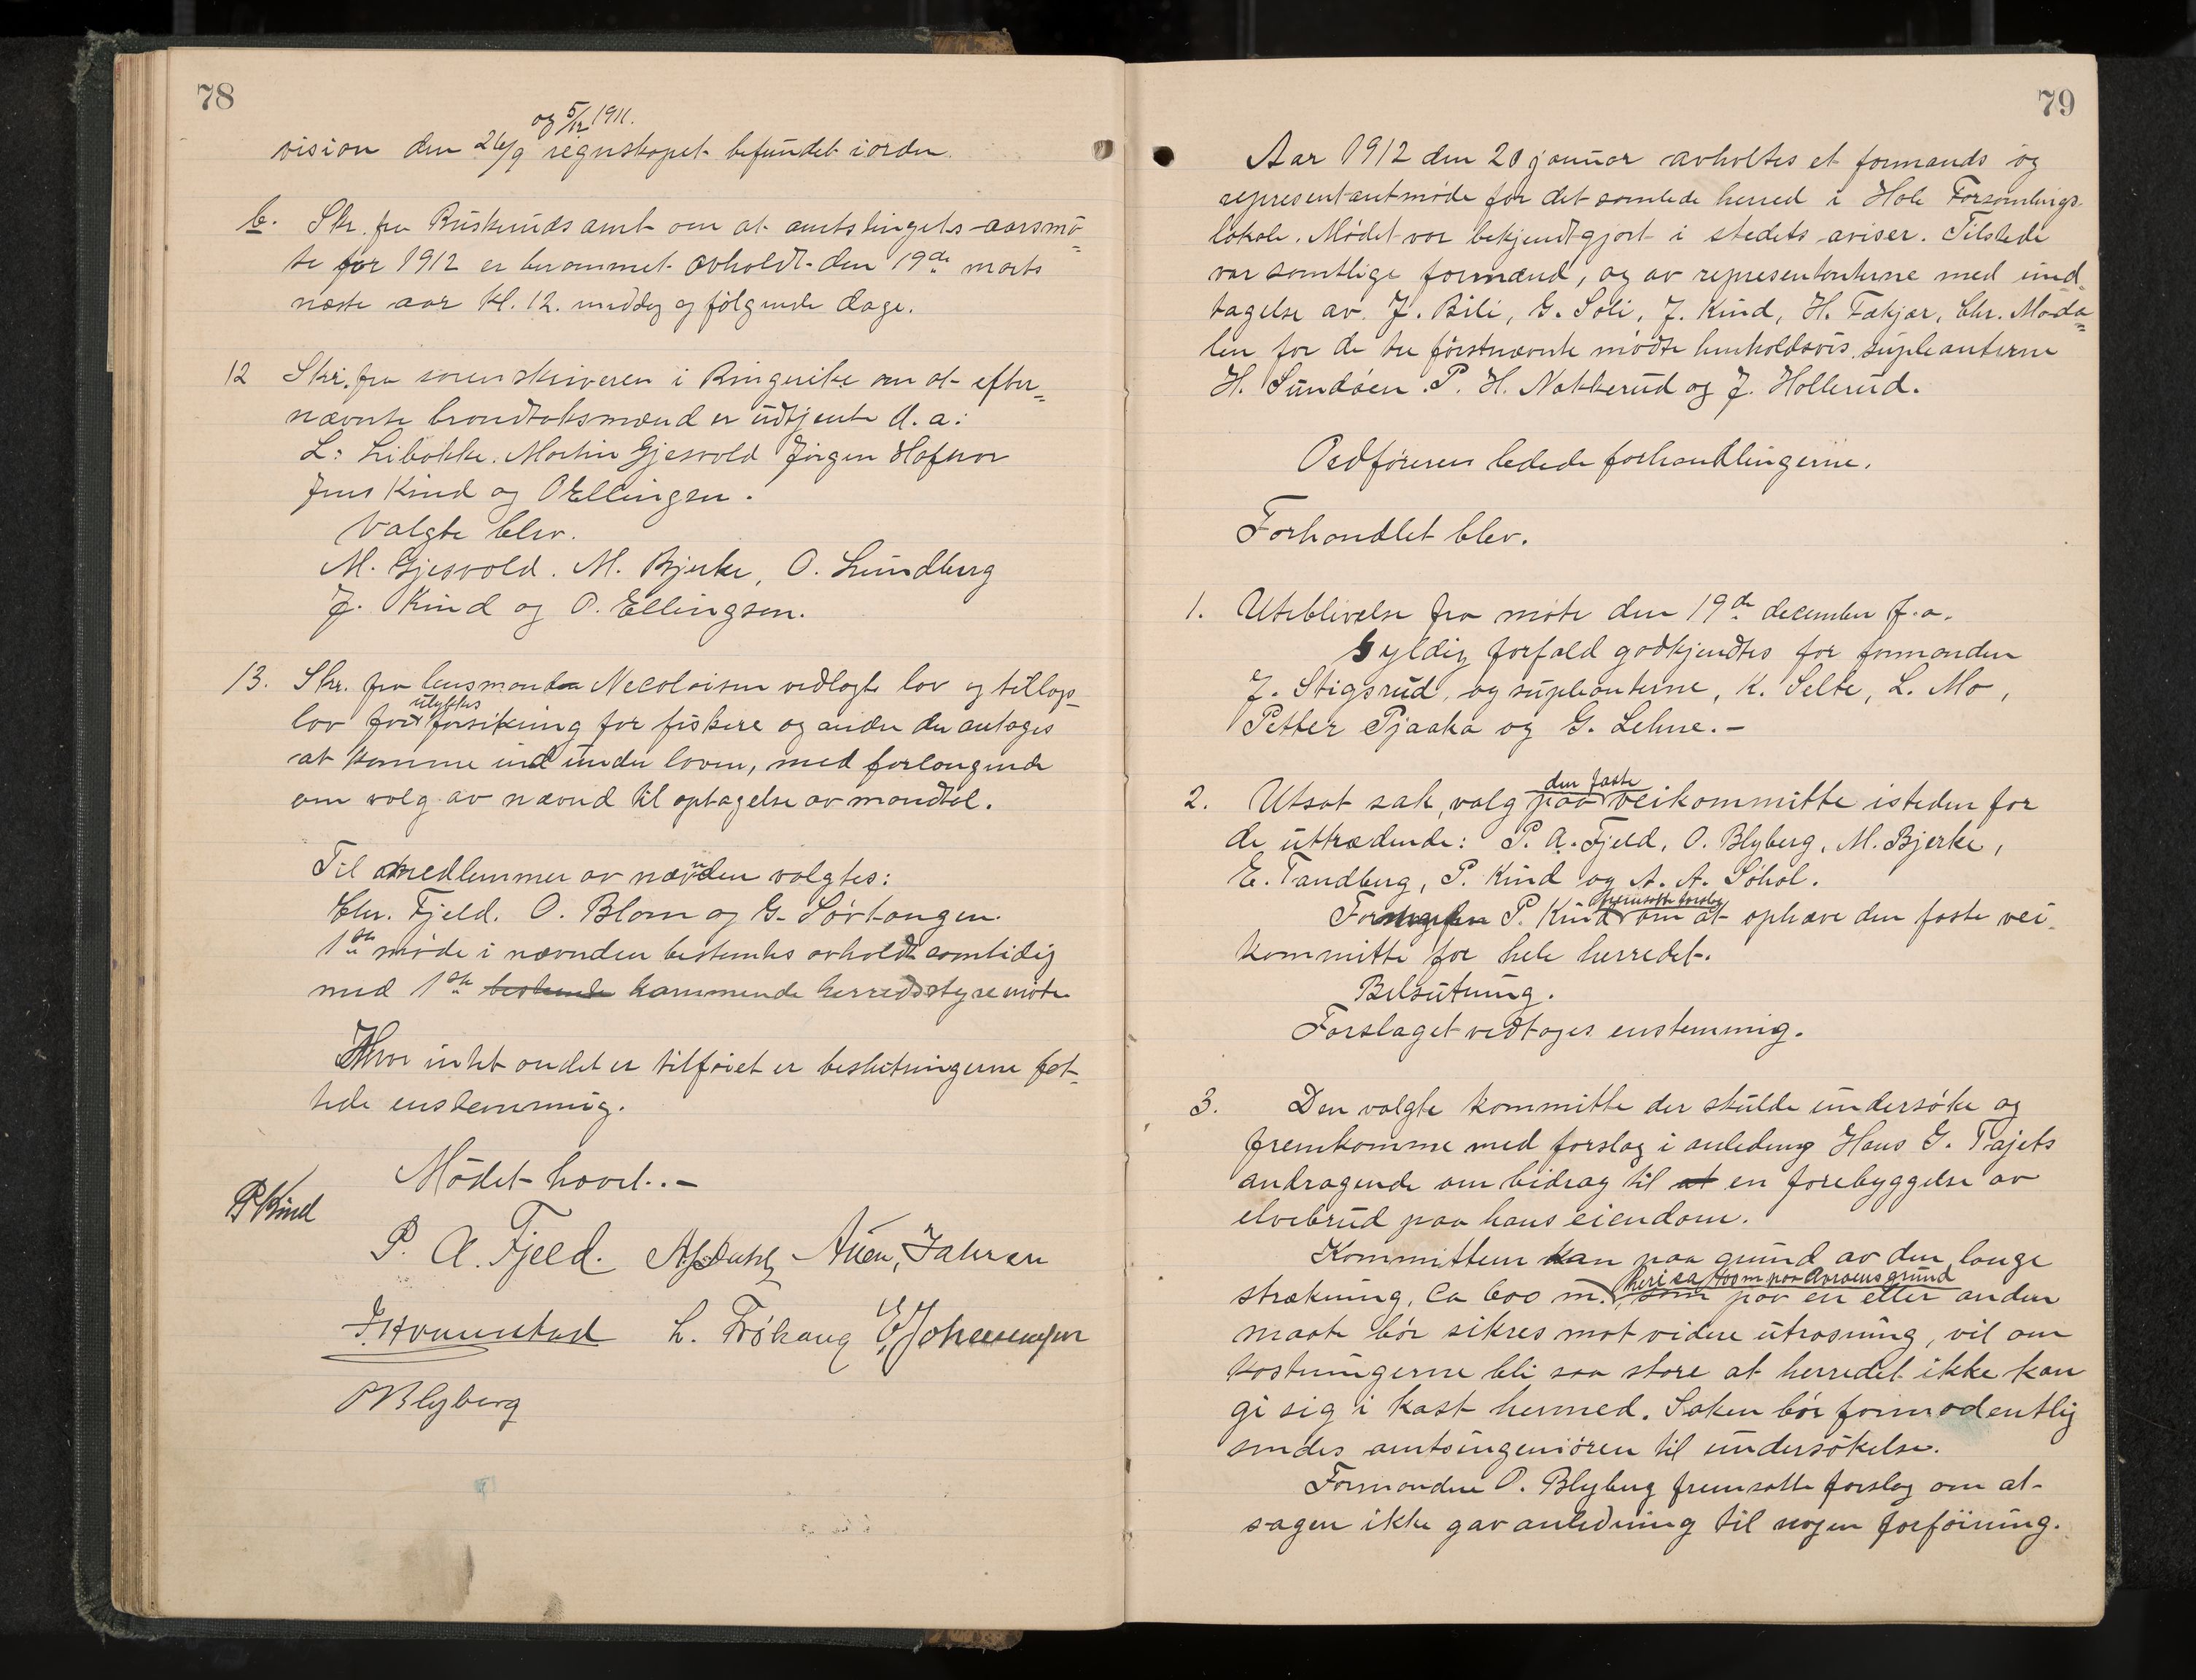 78
og 5/12 1911.
vision den 26/9 regnskapet befundet iorden.
b. Skr. fra Buskeruds amt om at amtstingets aarsmø-
te for 1912 er berammet avholdt den 19de marts
næste aar kl. 12. middag og følgende dage.
12 Skr. fra sorenskriveren i Ringerike om at efter-
nævnte brandtakstmænd er udtjente d. a:
L. Libakke. Martin Gjesvold Jørgen Hafnor
Jens Kind og O Ellingsen.
Valgte blev.
M. Gjesvold. M. Bjerke, O. Lundberg
J. Kind og O. Ellingsen.
13. Skr. fra lensmanden Necolaisen vedlagte lov og tillægs-
ulykkes
lov for forsikring for fiskere og andre der antages
at komme ind under loven, med forlangende
om valg av nævnd til optagelse av mandtal.
Til medlemmer av nævnden valgtes:
Chr. Fjeld. O. Blom og G. Sørtangen.
1ste møde i nævnden bestemtes avholdt samtidig
med 1ste bestemte kommende herredsstyremøte
Hvor intet andet er tilføiet er beslutningerne fat-
tede enstemmig.
Mødet hævet. -
P Kind
P. A. Fjeld.
L. Frøhaug E. Johannessen
O Blyberg
79
Aar 1912 den 20 januar avholtes et formands og
representantmøde for det samlede herred i Hole Forsamlings-
lokale. Mødet var bekjendtgjort i stedets aviser. Tilstede
var samtlige formænd, og av representanterne med und-
tagelse av J. Bili, G. Soli, J. Kind, H. Fækjær, Chr. Moda-
len for de tre førstnævnte mødte henholdsvis supleanterne
H. Sundøen. P. H. Nakkerud og J. Hollerud.
Ordføreren ledede forhandlingerne.
Forhandlet blev.
1. Uteblivelse fra møte den 19de december f. a.
Gyldig forfald godkjendtes for formanden
J. Stigsrud, og supleanterne, K. Selte, L. Mo,
Petter Pjaaka og G. Lehne. -
den faste
2. Utsat sak, valg paa veikommitte isteden for
de uttrædende: P. A. Fjeld, O. Blyberg, M. Bjerke,
E. Tandberg, P. Kind og A. A. Søhol.
fremsatte forslag
P. Kind om at ophæve den faste vei-
kommitte for hele herredet.
Belsutning.
Forslaget vedtages enstemmig.
3. Den valgte kommitte der skulde undersøke og
fremkomme med forslag i anledning Hans G. Trøjets
andragende om bidrag til at en forebyggelse av
elvebrud paa hans eiendom.
Kommitteen kan paa grund av den lange
heri ca 100 m paa Avraens grund
strækning, Ca 600 m. som paa en eller anden
maate bør sikres mot videre utrasning, vil om
kostningerne bli saa store at herredet ikke kan
gi sig i kast hermed. Saken bør formodentlig
sendes amtsingeniøren til undersøkelse.
Formanden O. Blyberg fremsatte forslag om at
sagen ikke gav anledning til nogen forføining.